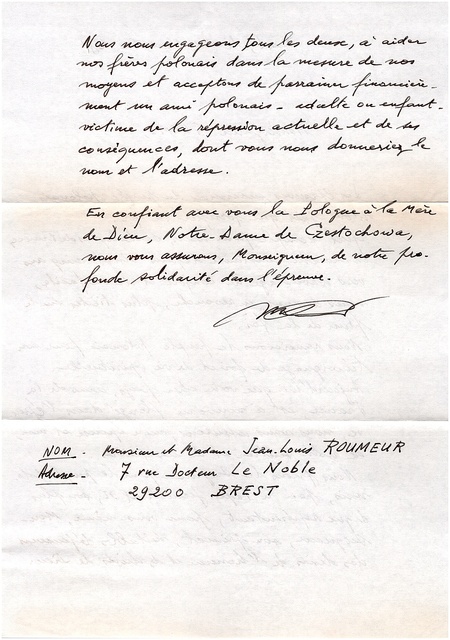 Nous nous engageons tous les deux, à aider
nos frères polonais dans la mesure de nos
moyens et acceptons de parrainer financière-
ment un ami polonais - adulte ou enfant -
victime de la répression actuelle et de ses
conséquences, dont vous nous donneriez le
nom et l'adresse.
En confiant avec vous la Pologne à la Mère
de Dieu, Notre-Dame de Czestochowa,
nous vous assurons, Monseigneur, de notre pro-
fonde solidarité dans l'épreuve.
NOM - Monsieur et Madame Jean-Louis ROUMEUR
Adresse - 7 rue Docteur Le Noble
29200 BREST